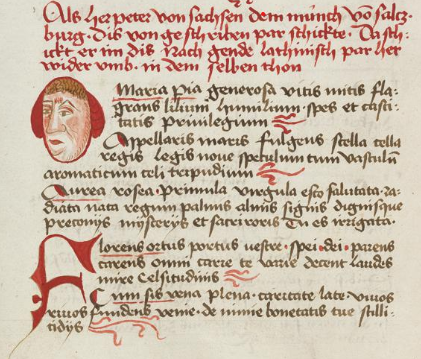 Als her peter von sachsen dem münch vō saltz-
burg. Dis von geschriben par schickte. Da sch-
ickt er im dis nach gende lathinisch par her
wider vmb. in dem selben thon
Maria pia generosa vitis mitis fla-
grans lilium humilium. spes et casti-
tatis priuilegium
Appellaris maris fulgens stella cella
regis legis noue speculum tum vastulū
aromaticum celi tripudium
Aurea rosea primula virgula esto salutata. ra-
diata nata regum palmis almis signis dignisque
preconijs misterijs et sacri roris Tu es irrigata.
Florens ortus portus vestre. spei. dei. parens
carens omni carie te varie decent laudes
mire Celsitudinis
Cum sis vena plena. caritate late. viuos
riuos fundens venie. de nimie bonetatis tue stilli-
tidijs